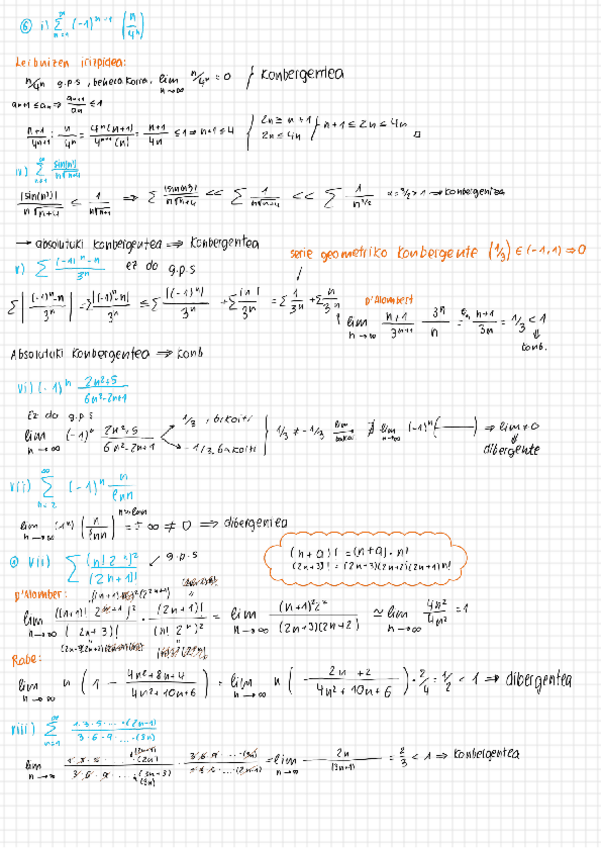 ⑥ i) ∑_{n=1}^{∞} (-1)^{n+1} (n/4^n)
Leibnizen irizpidea:
n/4^n g.p.s, beherakorra, lim_{n→∞} n/4^n = 0 } Konbergentea
a_{n+1} ≤ a_n ⇒ a_{n+1}/a_n ≤ 1
(n+1)/4^{n+1} : n/4^n = 4^n(n+1)/4^{n+1}(n) = (n+1)/4n ≤ 1 ⇒ n+1 ≤ 4 { 2n ≥ n+1, 2n ≤ 4n } n+1 ≤ 2n ≤ 4n □
iv) ∑_{n=1}^{∞} sin(n³)/(n√(n+4))
|sin(n³)|/(n√(n+4)) ≤ 1/(n√(n+1)) ⇒ ∑ |sin(n³)|/(n√(n+4)) << ∑ 1/(n√(n+4)) << ∑ 1/n^{3/2} α = 3/2 > 1 ⇒ konbergentea
→ absolutuki konbergentea ⇒ Konbergentea
serie geometriko konbergente (1/3) ∈ (-1,1) ⇒ 0
v) ∑ ((-1)^n - n)/3^n ez do g.p.s
∑ |((-1)^n - n)/3^n| = ∑ |(-1)^n - n|/3^n ≤ ∑ |(-1)^n|/3^n + ∑ |n|/3^n = ∑ 1/3^n + ∑ n/3^n
D'Alambert
lim_{n→∞} (n+1)/3^{n+1} · 3^n/n = (n+1)/3n = 1/3 < 1
⇓
konb.
Absolutuki Konbergentea ⇒ konb
vi) (-1)^n (2n²+5)/(6n²-2n+1)
Ez do g.p.s
lim_{n→∞} (-1)^n (2n²+5)/(6n²-2n+1) 1/3, bikoiti -1/3, bakoiti } 1/3 ≠ -1/3 ⇒ ∄ lim_{n→∞} (-1)^n (——) ⇒ lim ≠ 0
⇓
dibergente
vii) ∑_{n=2}^{∞} (-1)^n n/ln n
lim_{n→∞} (-1)^n (n/ln n) = ± ∞ ≠ 0 ⇒ dibergentea
⑨ vii) ∑ (n! 2^n)²/(2n+1)! g.p.s
(n+a)! = (n+a)·n!
(2n+3)! = (2n+3)(2n+2)(2n+1)n!
D'Alamber:
lim_{n→∞} ((n+1)! 2^{n+1})²/(2n+3)! · (2n+1)!/(n! 2^n)² = lim_{n→∞} (n+1)²2²/(2n+3)(2n+2) ≃ lim_{n→∞} 4n²/4n² = 1
Rabe:
lim_{n→∞} n (1 - (4n²+8n+4)/(4n²+10n+6)) = lim_{n→∞} n ((2n+2)/(4n²+10n+6)) · 2/4 = 1/2 < 1 ⇒ dibergentea
viii) ∑_{n=1}^{∞} 1·3·5·...·(2n-1)/3·6·9·...·(3n)
lim_{n→∞} = lim_{n→∞} 2n/(3n+1) = 2/3 < 1 ⇒ Konbergentea